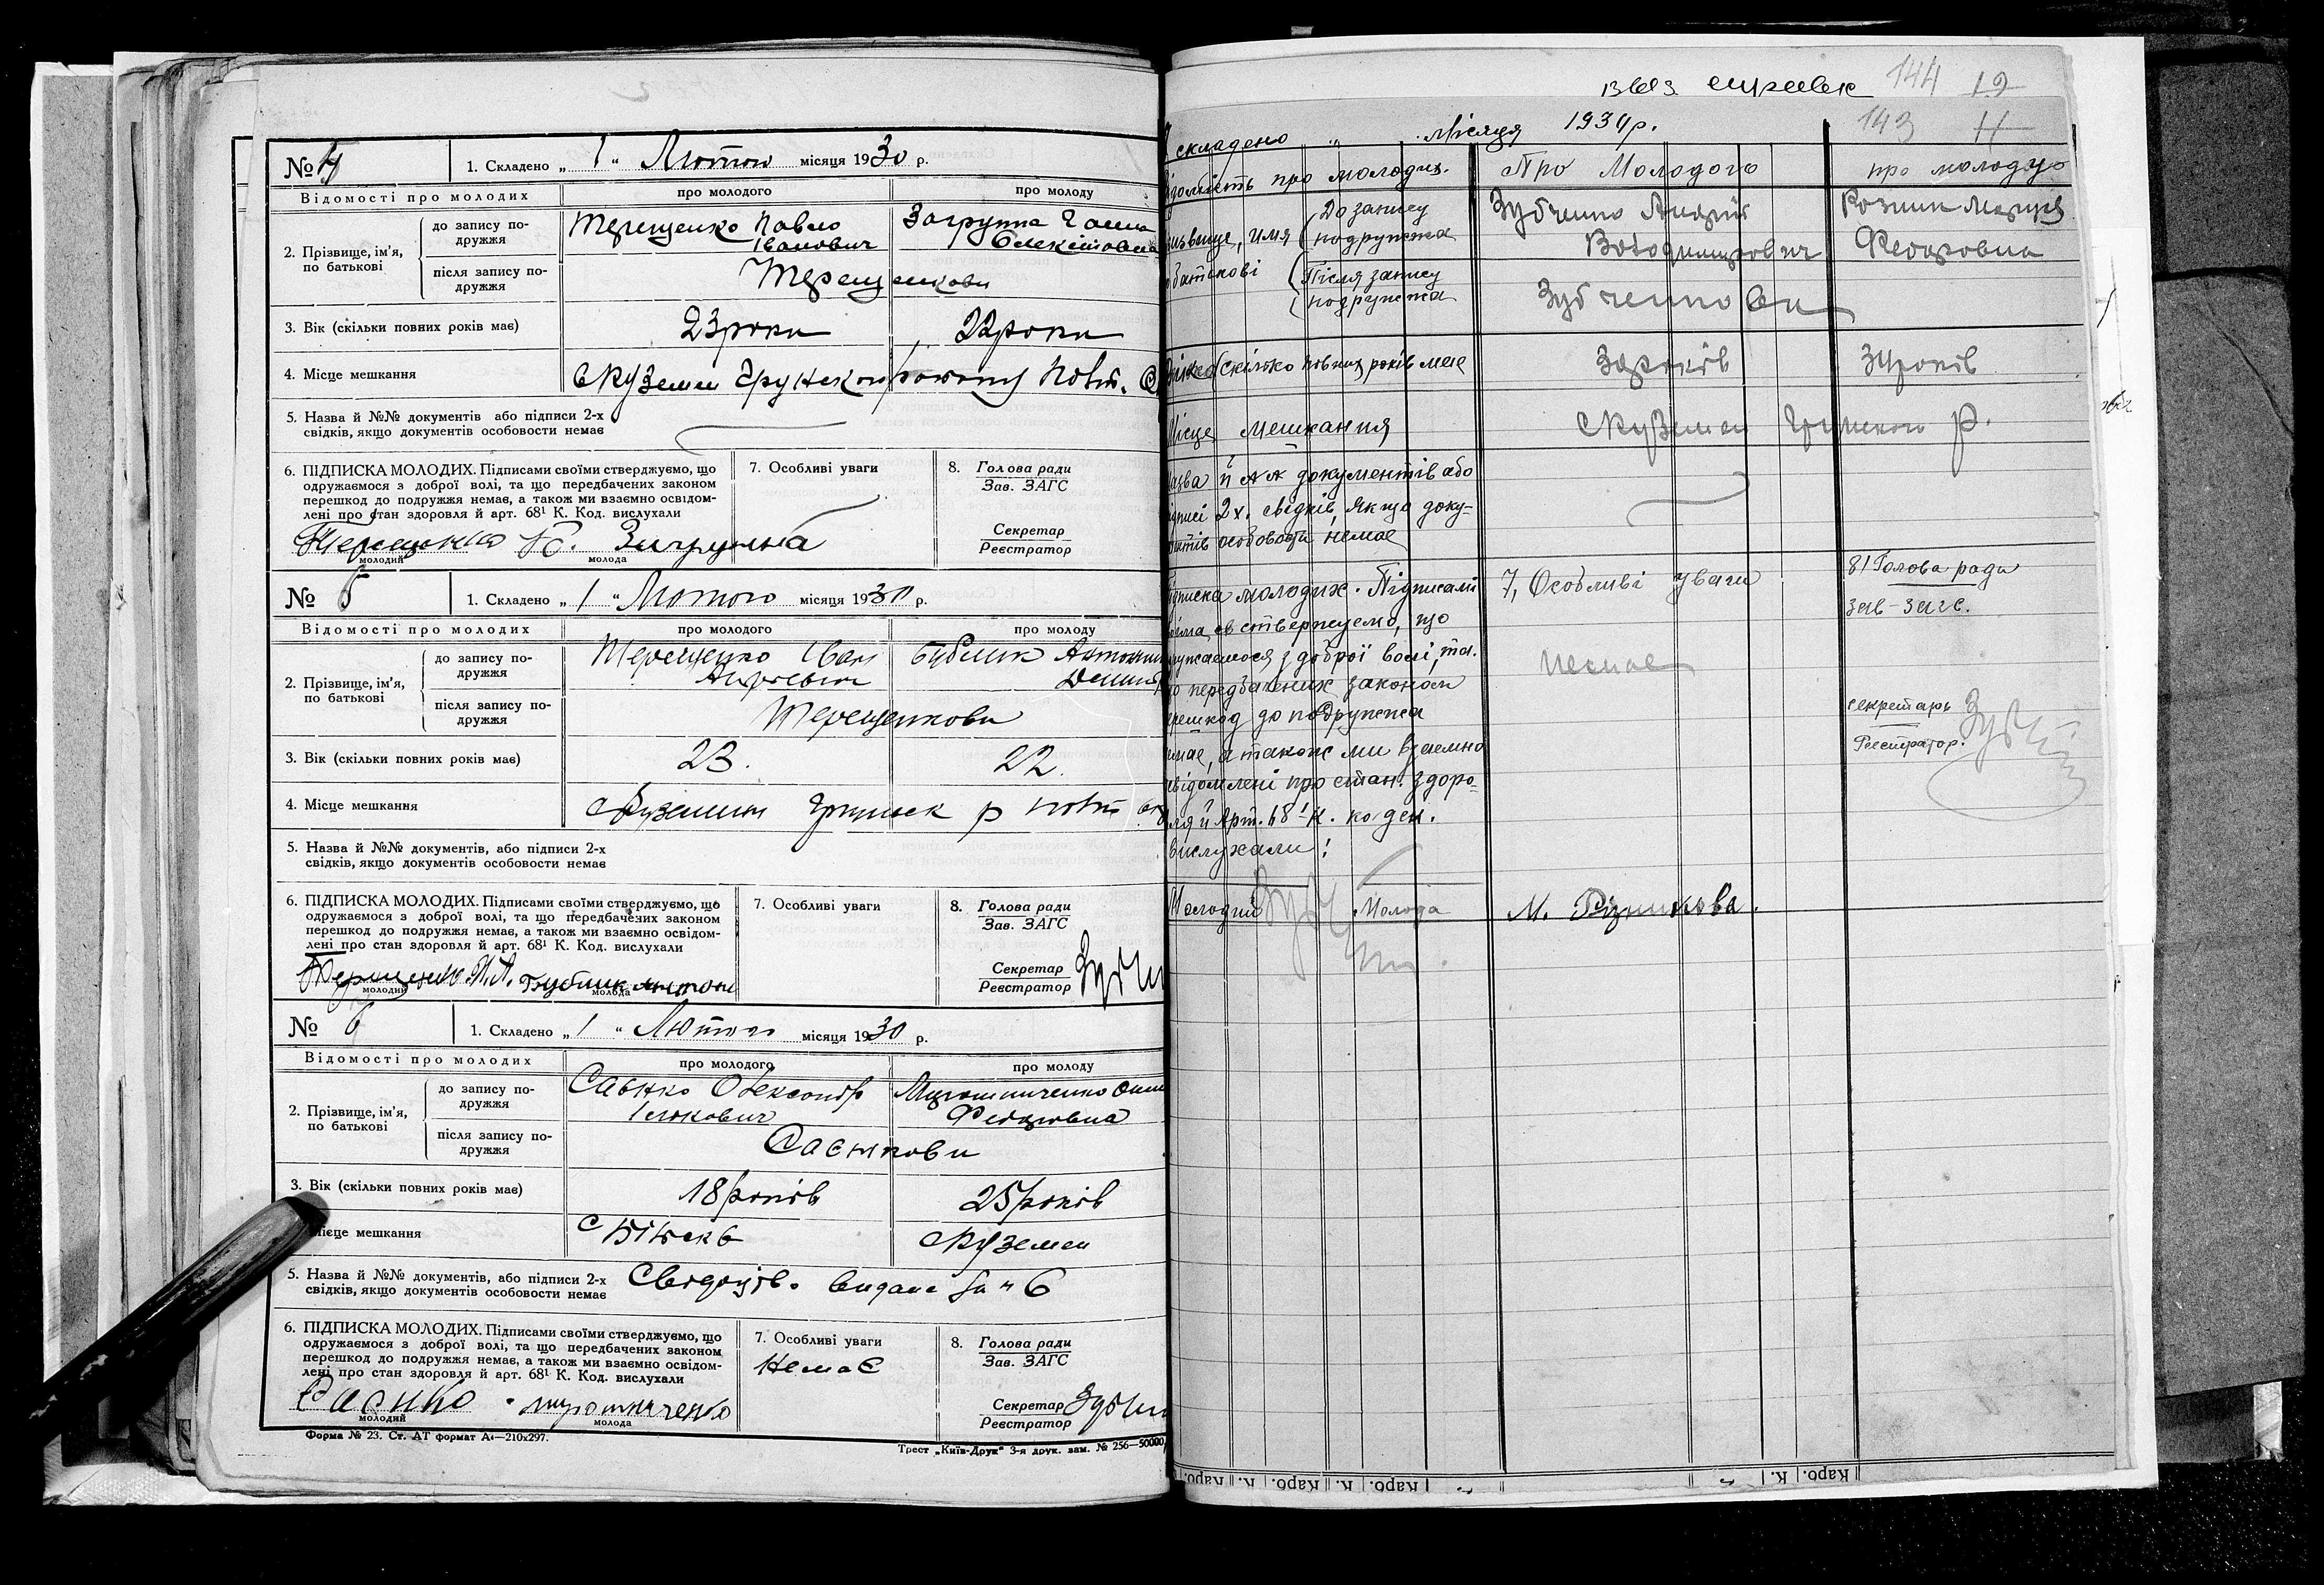 № 4
1. Складено „ 1 " Лютого місяця 1930 р.
Відомості про молодих
про молодого
про молоду
2. Прізвище, ім'я,
по батькові
до запису по-
дружжя
Терещенко Павло
Іванович
Загрупа Ганна
Олексіївна
після запису по-
дружжя
Терещенкови
3. Вік (скільки повних років має)
23 роки
22 роки
4. Місце мешкання
с Куземен Грунського району Полт.
5. Назва й №№ документів або підписи 2-х
свідків, якщо документів особовости немає
6. ПІДПИСКА МОЛОДИХ. Підписами своїми стверджуємо, що
одружаємося з доброї волі, та що передбачених законом
перешкод до подружжя немає, а також ми взаємно освідом-
лені про стан здоровля й арт. 68¹ К. Код. вислухали
молодий
молода
7. Особливі уваги
8. Голова ради
Зав. ЗАГС
Секретар
Реєстратор
№ 5
1. Складено „ 1 " Лютого місяця 1930 р.
Відомості про молодих
про молодого
про молоду
2. Прізвище, ім'я,
по батькові
до запису по-
дружжя
Терещенко Іван
Андрієвич
Бублик Антонин
після запису по-
дружжя
Терещенкови
3. Вік (скільки повних років має)
23.
22.
4. Місце мешкання
с Куземин Грунськ р полт окр
5. Назва й №№ документів, або підписи 2-х
свідків, якщо документів особовости немає
6. ПІДПИСКА МОЛОДИХ. Підписами своїми стверджуємо, що
одружаємося з доброї волі, та що передбачених законом
перешкод до подружжя немає, а також ми взаємно освідом-
лені про стан здоровля й арт. 68¹ К. Код. вислухали
Терещенко. И. А. Бублик Антони
молодий
молода
7. Особливі уваги
8. Голова ради
Зав. ЗАГС
Секретар
Реєстратор
№ 6
1. Складено „ 1 " Лютого місяця 1930 р.
Відомості про молодих
про молодого
про молоду
2. Прізвище, ім'я,
по батькові
до запису по-
дружжя
Саєнко Олександр
Мирошниченко
Федоровна
після запису по-
дружжя
Саєнкови
3. Вік (скільки повних років має)
18 років
25 років
Місце мешкання
с Куземен
5. Назва й №№ документів, або підписи 2-х
свідків, якщо документів особовости немає
видане
6. ПІДПИСКА МОЛОДИХ. Підписами своїми стверджуємо, що
одружаємося з доброї волі, та що передбачених законом
перешкод до подружжя немає, а також ми взаємно освідом-
лені про стан здоровля й арт. 68¹ К. Код. вислухали
Саєнко мирошниченко
молодий
молода
7. Особливі уваги
Немає
8. Голова ради
Зав. ЗАГС
Секретар
Реєстратор
Форма № 23. Ст. АТ формат А₄—210х297.
Трест „Київ-Друк" 3-я друк. зам. № 256—50000
144 19
143 11
складено „ місяця 1934 р.
домість про молодих.
Про Молодого
про молодую
ізвище, имя
батькові
До запису
подружжа
Зубченко Андрій
Володимирович
Розник Марія
Федоровна
Після запису
подружжа
Зубченкови
скілько повних років має
років
років
Місце мешкання
с Куземен Грунського р.
азва й №№ документів або
ідписі 2х. свідків, Якщо доку-
ентів особовости немае
ідписка молодих. Підписами
воіма ствержуемо, що
ружаемося з доброї волі, та.
о передбачених законом
ерешкод до подружжа
емае, а також ми взаемно
свідомлені про стан. здоро-
ля й Арт. 68¹ К. кодек.
вислухали!
7, Особливі уваги
немае
8/ Голова ради
зав-загс.
секретарь
Реестратор.
Молодий
Молода
М. Різникова.